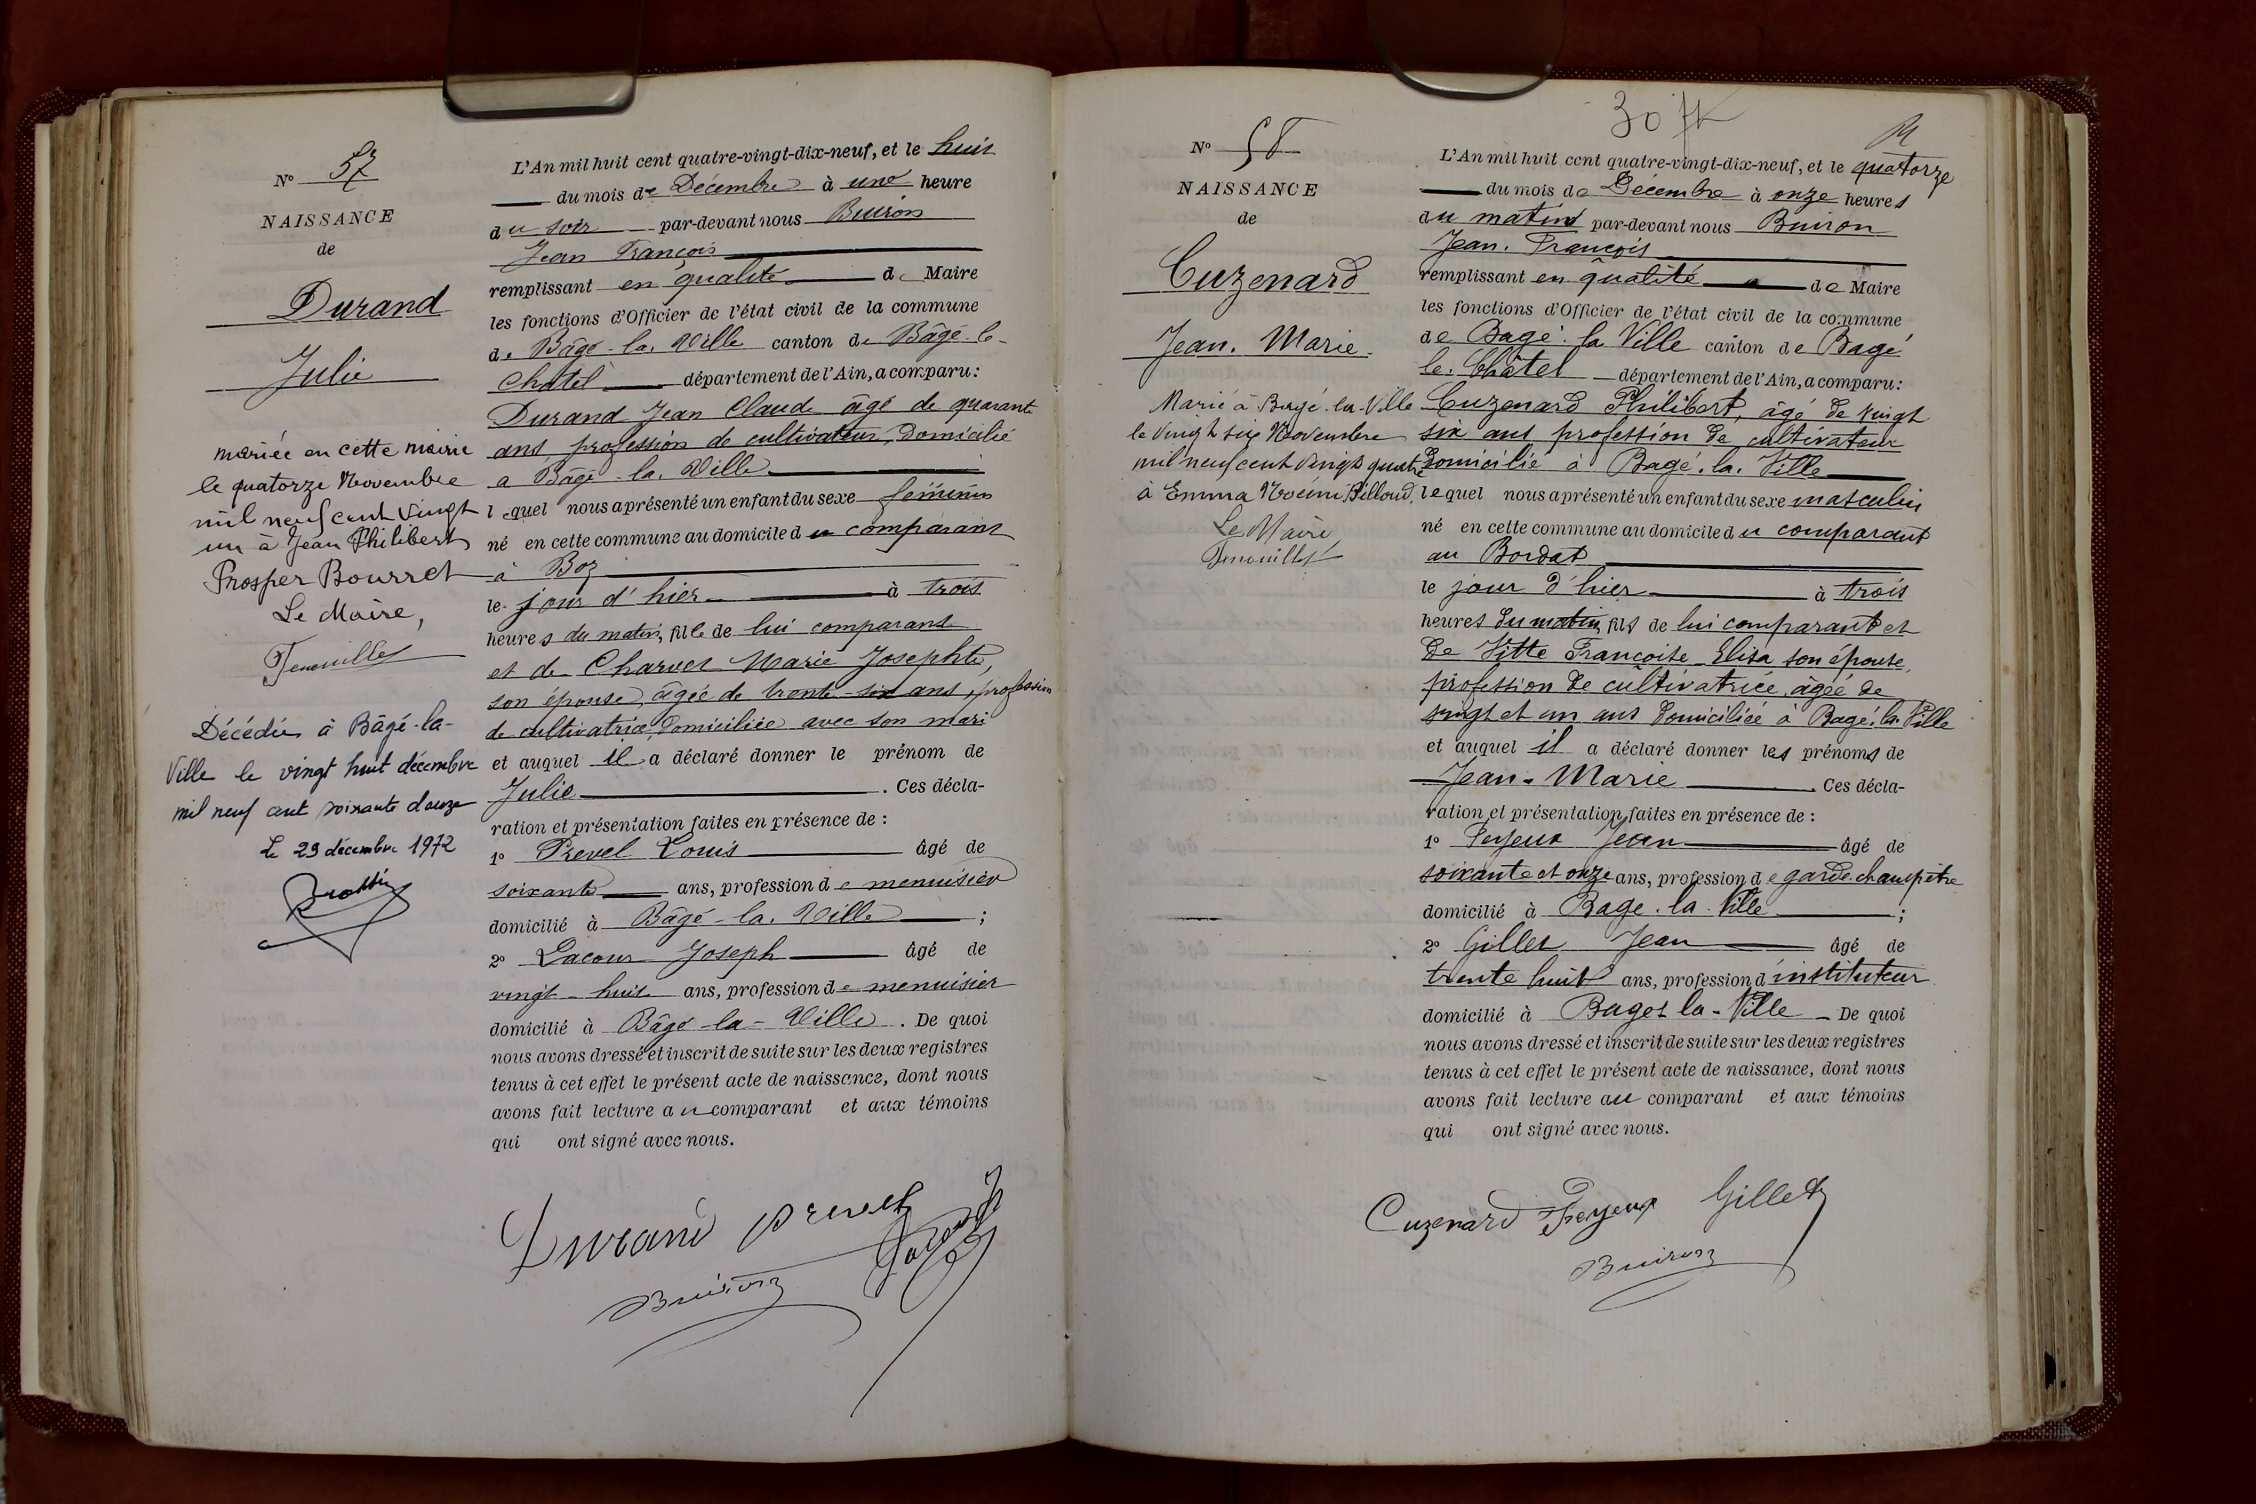 N° 57
NAISSANCE
de
Durand
Julie
mariée en cette mairie
le quatorze Novembre
mil neuf cent vingt
un à Jean Philibert
Prosper Bourret
Le Maire,
Décédée à Bâgé-la-
Ville le vingt huit décembre
mil neuf cent soixante douze
Le 29 décembre 1972
L'An mil huit cent quatre-vingt-dix-neuf, et le huit
du mois de Décembre à une heure
du soir par-devant nous Buiron
Jean François
remplissant en qualité de Maire
les fonctions d'Officier de l'état civil de la commune
de Bâgé-la-Ville canton de Bâgé-le-
Châtel département de l'Ain, a comparu :
Durand Jean Claude âgé de quarante
ans, profession de cultivateur, domicilié
à Bâgé-la-Ville
lequel nous a présenté un enfant du sexe féminin
né en cette commune au domicile du comparant
à Boz
le jour d'hier à trois
heures du matin, fille de lui comparant
et de Charvet Marie Josephte,
son épouse, âgée de trente-six ans, profession
de cultivatrice, domiciliée avec son mari
et auquel il a déclaré donner le prénom de
Julie. Ces décla-
ration et présentation faites en présence de :
1° Prevel Louis âgé de
soixante ans, profession de menuisier
domicilié à Bâgé-la-Ville ;
2° Lacour Joseph âgé de
vingt-huit ans, profession de menuisier
domicilié à Bâgé-la-Ville. De quoi
nous avons dressé et inscrit de suite sur les deux registres
tenus à cet effet le présent acte de naissance, dont nous
avons fait lecture au comparant et aux témoins
qui ont signé avec nous.
Durand Prevel Lacour
Buiron
307
N° 58
NAISSANCE
de
Cuzenard
Jean. Marie.
Marié à Bagé-la-Ville
le Vingt six Novembre
mil neuf cent Vingt quatre
à Emma Noëmi Billoud.
Le Maire,
L'An mil huit cent quatre-vingt-dix-neuf, et le quatorze
du mois de Décembre à onze heures
du matin par-devant nous Buiron
Jean. François
remplissant en qualité de Maire
les fonctions d'Officier de l'état civil de la commune
de Bagé. la Ville canton de Bagé
le. Châtel département de l'Ain, a comparu :
Cuzenard Philibert, âgé de vingt
six ans profession de cultivateur
domicilié à Bagé. la. Ville
lequel nous a présenté un enfant du sexe masculin
né en cette commune au domicile du comparant
au Bordat
le jour d'hier à trois
heures du matin, fils de lui comparant et
de Vitte Françoise Elisa son épouse,
profession de cultivatrice, âgée de
vingt et un ans domiciliée à Bagé. la Ville
et auquel il a déclaré donner les prénoms de
Jean-Marie. Ces décla-
ration et présentation faites en présence de :
1° Feyeux Jean âgé de
soixante et onze ans, profession de garde-champêtre
domicilié à Bage. la Ville ;
2° Gillet Jean âgé de
trente huit ans, profession d'instituteur
domicilié à Baget la-Ville De quoi
nous avons dressé et inscrit de suite sur les deux registres
tenus à cet effet le présent acte de naissance, dont nous
avons fait lecture au comparant et aux témoins
qui ont signé avec nous.
Cuzenard Feyeux Gillet
Buiron